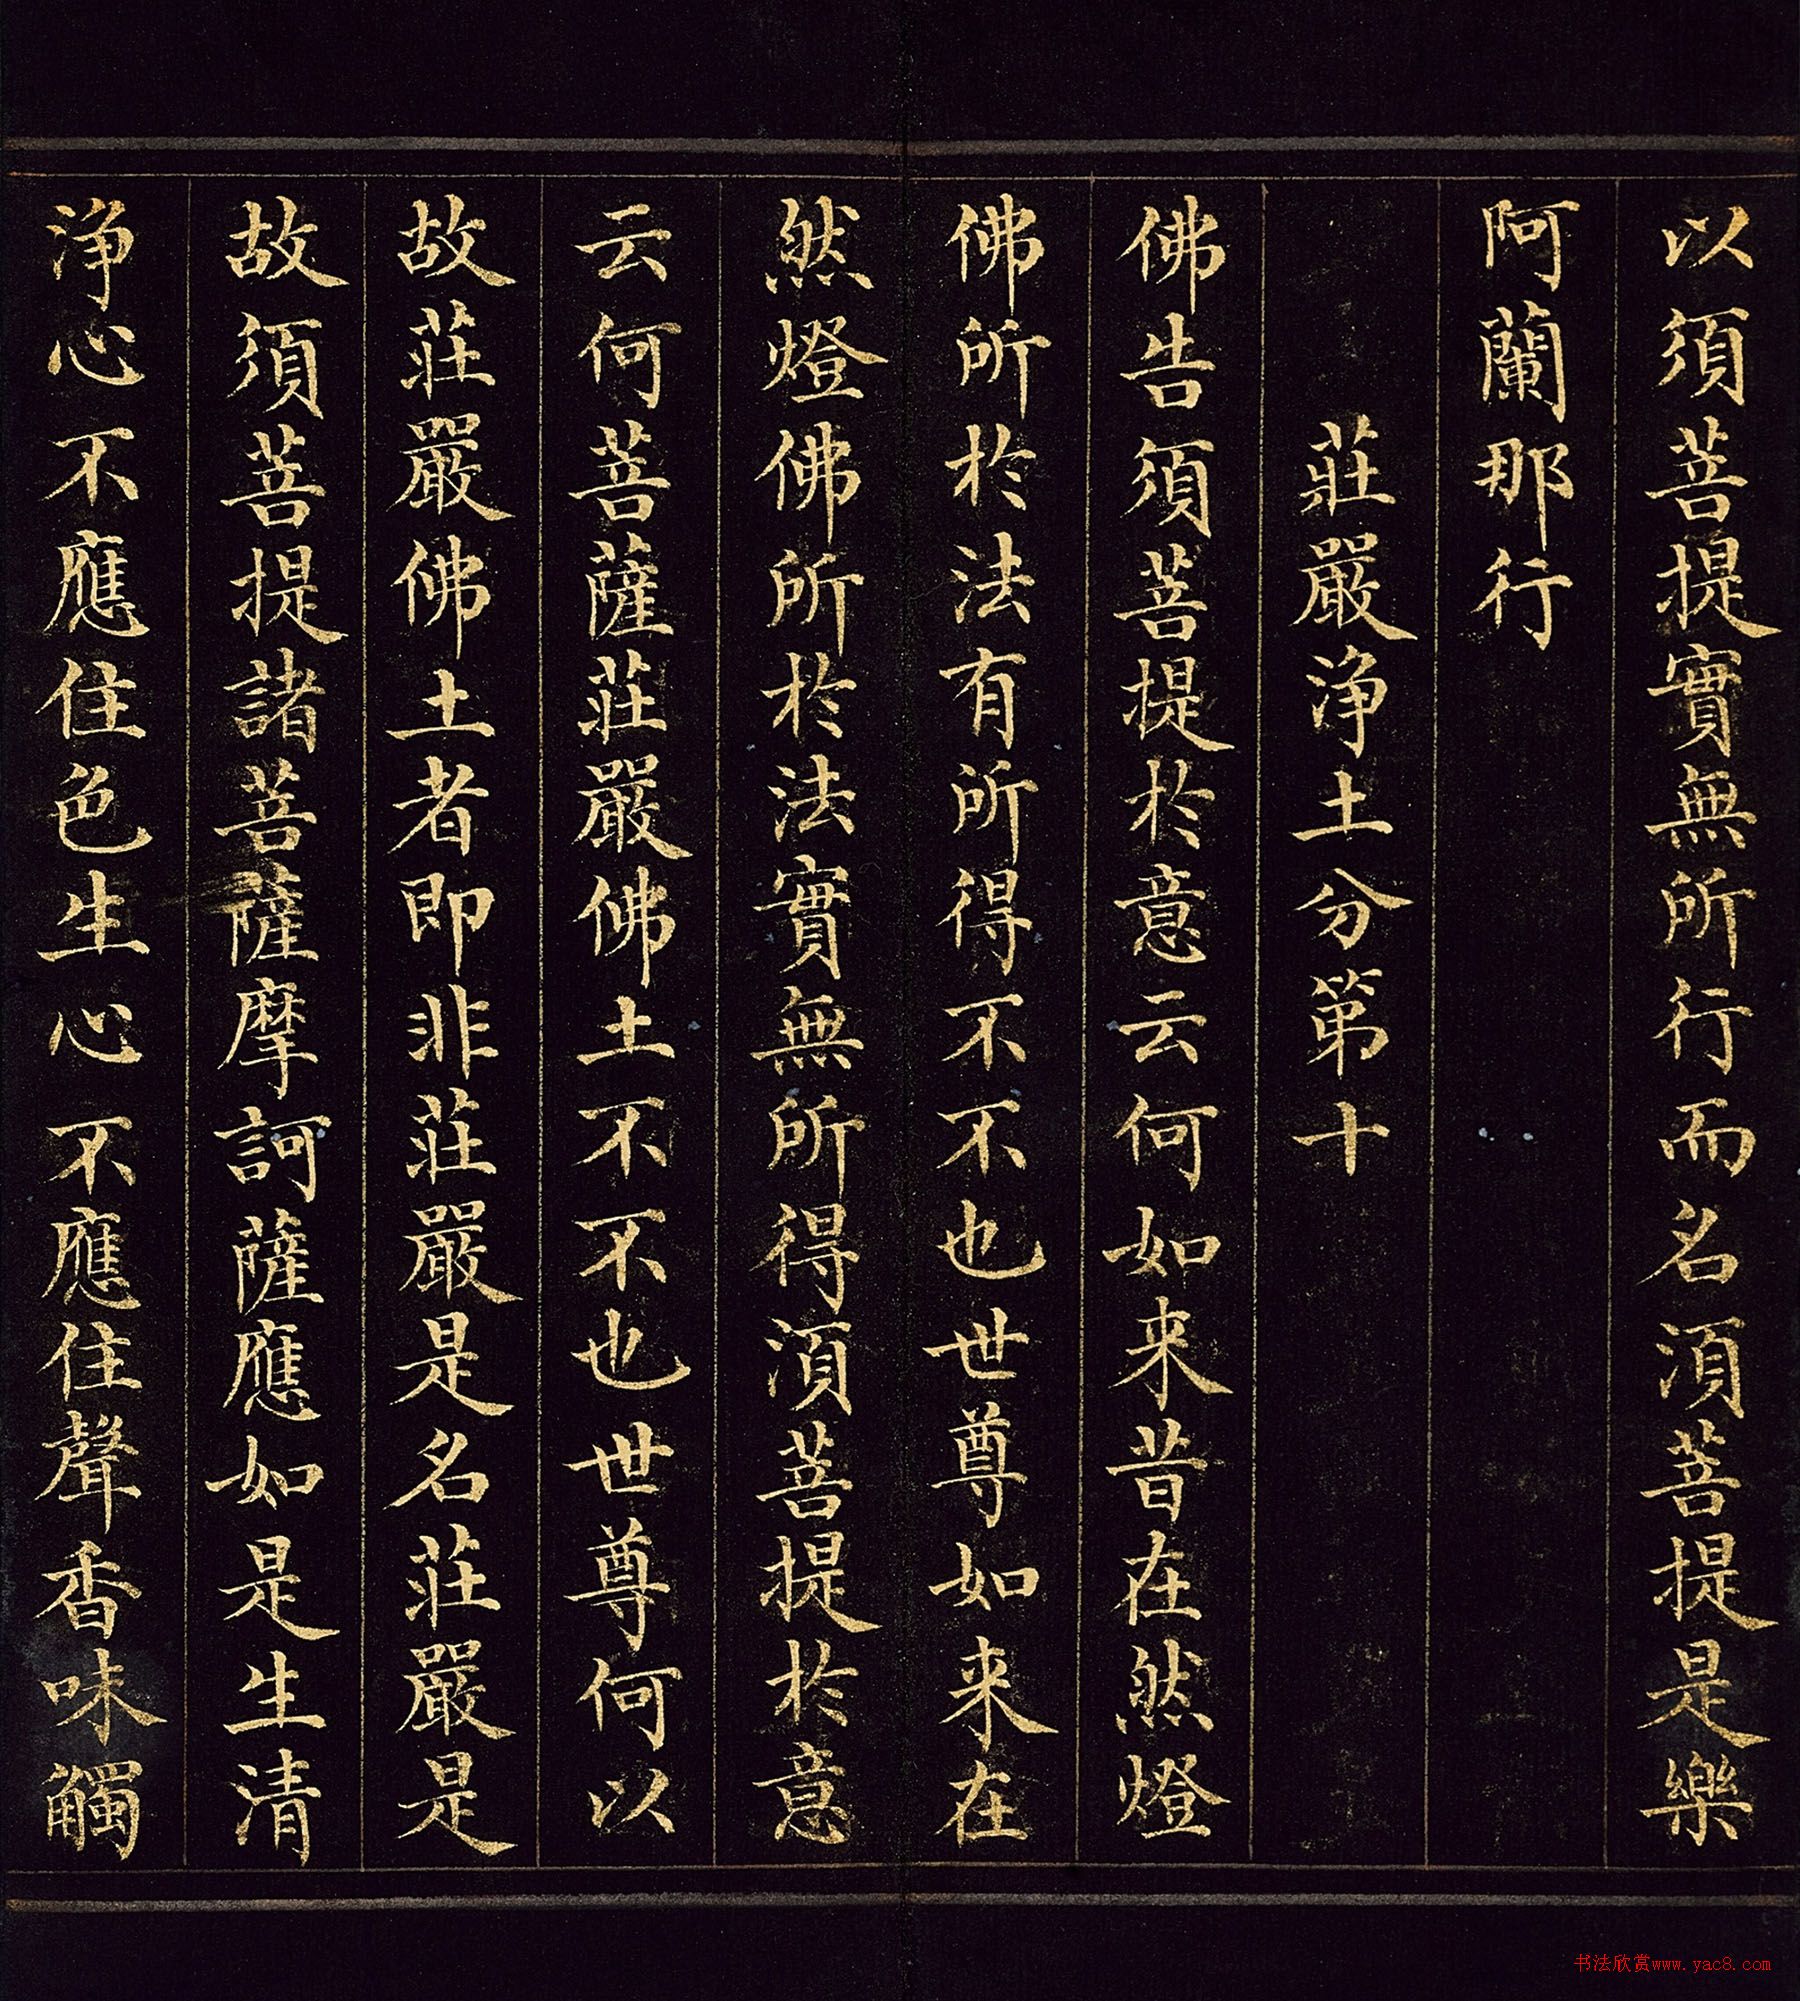 以須菩提實無所行而名湏菩提是樂
阿蘭那行
莊嚴淨土分第十
佛告須菩提於意云何如来昔在然燈
佛所於法有所得不不也世尊如来在
然燈佛所於法實無所得湏菩提於意
云何菩薩莊嚴佛土不不也世尊何以
故莊嚴佛土者即非莊嚴是名莊嚴是
故須菩提諸菩薩摩訶薩應如是生清
淨心不應住色生心不應住聲香味觸
书法欣赏www.yac8.com